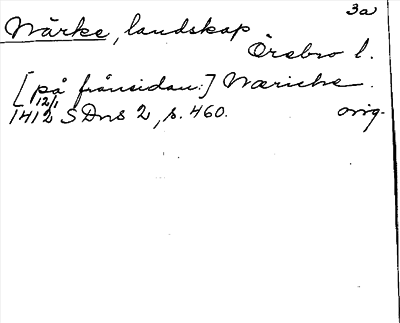 3a
Närke, landskap
Örebro l.
[på frånsidan:] Nœricke.
12/1
1412 SDns 2, s. 460. orig.